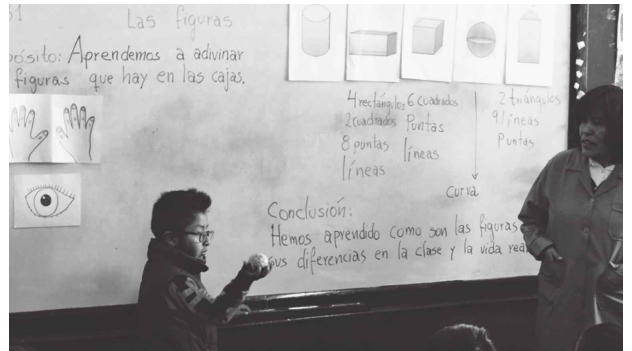 Las figuras
pósito: Aprendemos a adivinar
figuras que hay en las cajas.
4 rectángulos
2 cuadrados
8 puntas
líneas
6 cuadrados
Puntas
líneas
curva
2 triángulos
9 líneas
Puntas
Conclusión:
Hemos aprendido como son las figuras
sus diferencias en la clase y la vida real